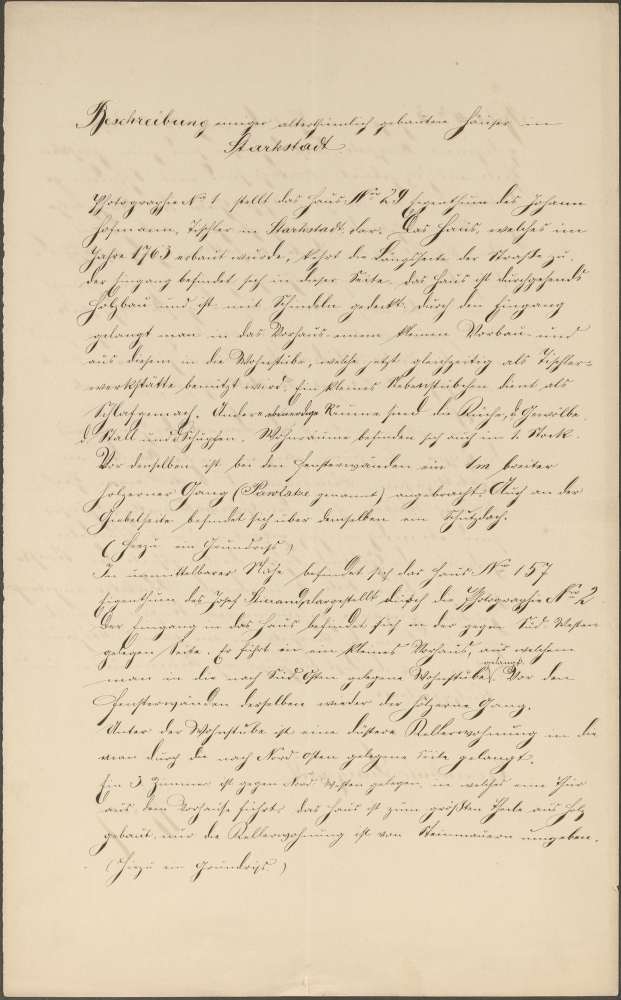 Beschreibung einiger alterthümlich gebauten Häuser in
Starkstadt
Photographie No 1 stellt das Haus Nro 29 Eigenthum des Johann
Hofmann, Tischler in Starkstadt dar. Das Haus, welches im
Jahre 1763 erbaut wurde, kehrt die Längsseite der Straße zu.
Der Eingang befindet sich in dieser Seite. Das Haus ist durchgehends
Holzbau und ist mit Schindeln gedeckt. Durch den Eingang
gelangt man in das Vorhaus einem kleinen Vorbau und
aus diesem in die Wohnstube, welche jetzt gleichzeitig als Tischler-
werkstätte benützt wird. Ein kleines Nebenstübchen dient als
Schlafgemach. Andere Räume sind die Küche, d. Gewölbe,
d. Stall und d. Schupfen. Wohnräume befinden sich auch im 1. Stock.
Vor denselben ist bei den Fensterwänden ein 1m breiter
hölzerner Gang (Pawlatze genannt) angebracht. Auch an der
Giebelseite befindet sich über demselben ein Schutzdach.
(Hiezu ein Grundriss.)
In unmittelbarer Nähe befindet sich das Haus No 157
Eigenthum des Josef dargestellt durch die Photographie Nro 2
Der Eingang in das Haus befindet sich in der gegen Süd Westen
gelegen Seite. Er führt in ein kleines Vorhaus, aus welchem
man in die nach Süd Osten gelegene Wohnstube gelangt. Vor den
Fensterwänden derselben wieder der hölzerne Gang.
Unter der Wohnstube ist eine düstere Kellerwohnung in die
man durch die nach Nord Osten gelegene Seite gelangt.
Ein 3 Zimmer ist gegen Nord Westen gelegen, in welches eine Thür
aus dem Vorhause führt. Das Haus ist zum größten Theile aus Holz
gebaut, nur die Kellerwohnung ist von Steinmauern umgeben.
(Hiezu ein Grundriss.)